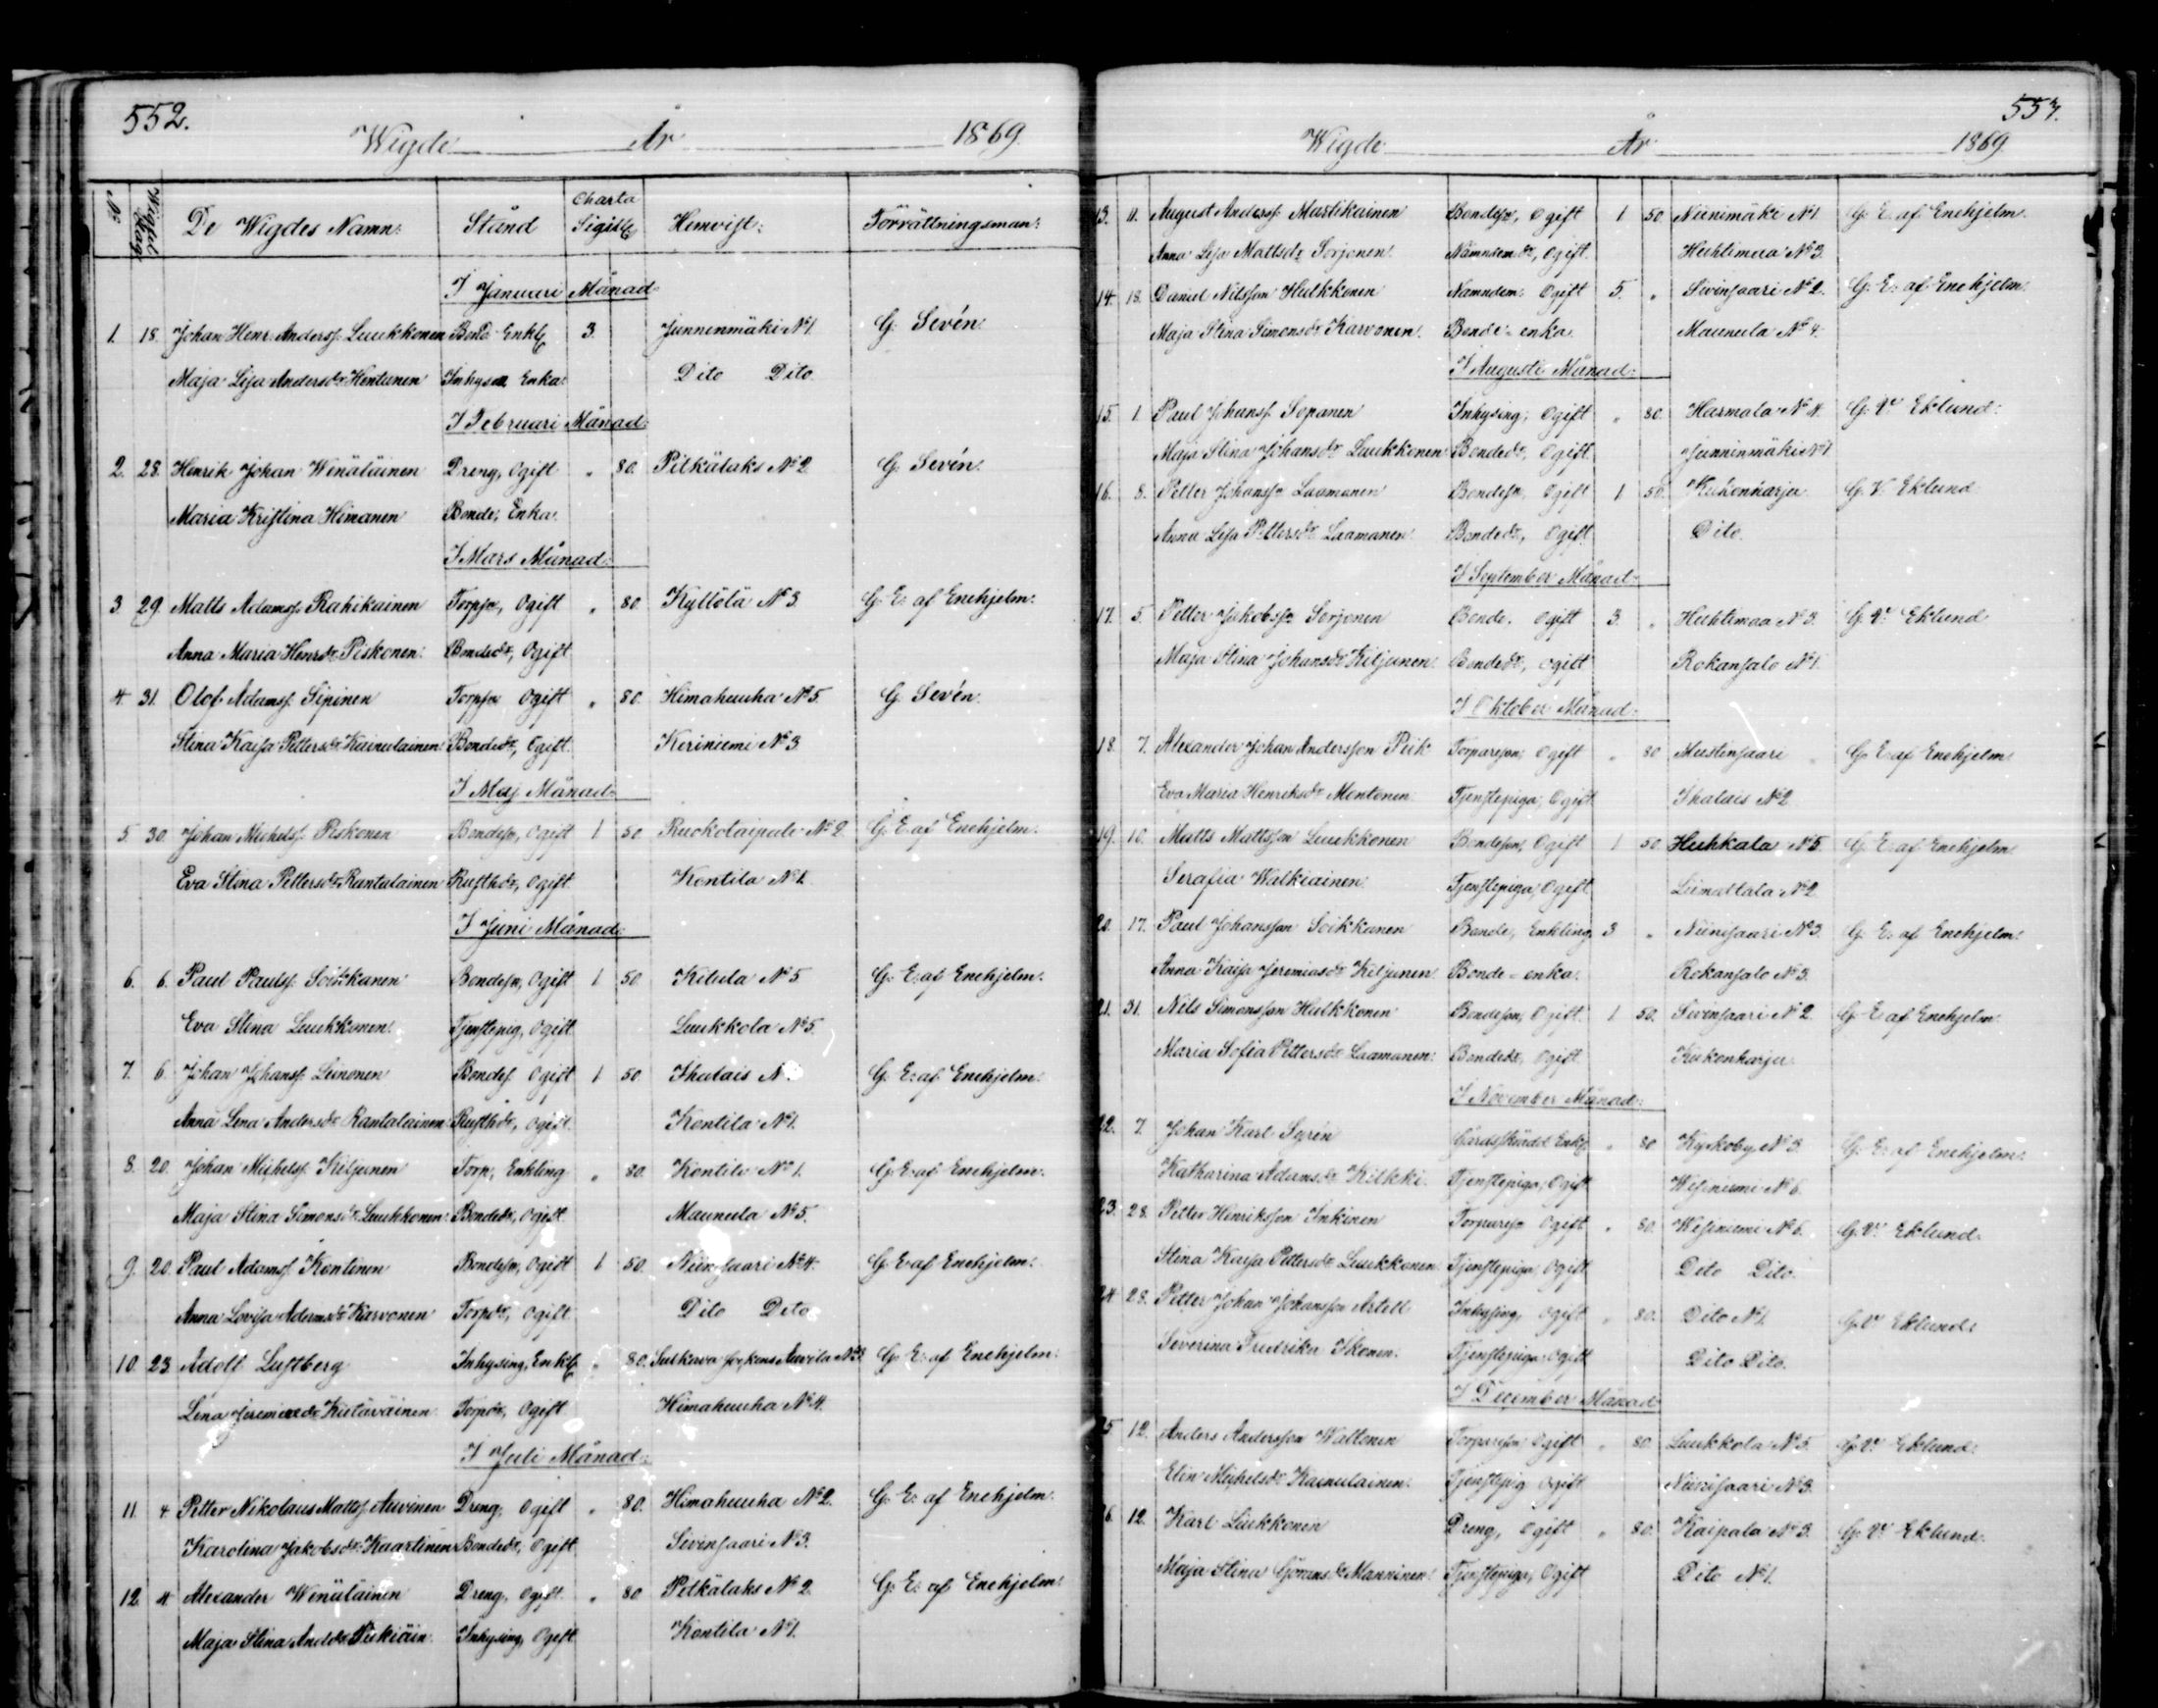 552.
Wigde År 1869.
No Wigsel dag De Wigdes Namn: Stånd Charta Sigill Hemvist: Förrättningsman:
I Januari Månad:
1. 18. Johan Henr. Anderss. Luukkonen Bond. Enkl 3. Junninmäki No 1. G. Sevén.
Maja Lisa Andersdr Hentunen Inhyses Enka: Dito Dito.
I Februari Månad:
2. 28. Henrik Johan Winäläinen Dreng, Ogift " 80. Pitkälaks No 2 G. Sevén.
Maria Kristina Himanen Bonde, Enka.
I Mars Månad:
3. 29. Matts Adamss. Rahikainen Torpsn, Ogift " 80. Kyllölä No 3. G. E. af Enehjelm.
Anna Maria Henrdr Piskonen: Bondedr, Ogift
4. 31. Olof Adamss. Sipinen Torpsn Ogift " 80. Himahuuha No 5. G. Sevén.
Stina Kaisa Pettersdr Kainulainen: Bondedr, Ogift. Keriniemi No 3
I Maj Månad:
5. 30. Johan Michelss. Piskonen Bondesn, Ogift 1 50. Ruokolaipale No 2. G. E. af Enehjelm.
Eva Stina Pettersdr Rantalainen Rusthdr, Ogift. Kontila No 1.
I Juni Månad:
6. 6. Paul Paulss. Soikkanen Bondesn, Ogift 1 50. Kilula No 5 G. E. af Enehjelm.
Eva Stina Luukkonen. Tjenstepig, Ogift. Luukkola No 5.
7. 6. Johan Johanss. Leinonen Bondes. Ogift 1 50. Ihalais N G. E. af Enehjelm.
Anna Lena Andersdr Rantalainen Rusthdr, Ogift. Kontila No 1.
8. 20. Johan Michelss. Kiljunen Torp, Enkling " 80. Kontila No 1. G. E. af Enehjelm.
Maja Stina Simonsdr Luukkonen. Bondedr, Ogift. Maunula No 5.
9. 20. Paul Adamss. Kontinen Bondesn, Ogift 1 50. Niinsaari No 4. G. E. af Enehjelm.
Anna Lovisa Adamsdr Karvonen Torpdr, Ogift. Dito Dito
10. 23. Adolf Luftberg Inhysing, Enkl " 80. Sulkava Auvila No 3. G. E. af Enehjelm.
Lena Kutäväinen Torpdr, Ogift. Himahuuha No 4.
I Juli Månad:
11. 4. Petter Nikolaus Mattss. Auvinen Dreng, Ogift " 80. Himahuuha No 2. G. E. af Enehjelm.
Karolina Jakobsdr Kaartinen Bondedr, Ogift. Sivinsaari No 3.
12. 4 Alexander Winäläinen Dreng, Ogift. " 80. Pitkälaks No 2. G. E. af Enehjelm.
Maja Stina Inhysing, Ogift. Kontila No 1.
553.
Wigde År 1869.
13. 11. August Anderss. Martikainen Bondesn, Ogift 1 50. Niinimäki No 1. G. E. af Enehjelm.
Anna Lisa Mattsdr Sorjonen. Nämndemdr, Ogift. Huhtimaa No 3.
14. 18. Daniel Nilsson Hulkkonen Nämndem. Ogift 5. " Sivinsaari No 2. G. E. af Enehjelm.
Maja Stina Simonsdr Karvonen. Bonde-enka. Maunula No 4.
I Augusti Månad:
15. 1. Paul Johanss. Sopanen Inhysing, Ogift " 80. Harmala No 4. G. W. Eklund.
Maja Stina Johansdr Luukkonen Bondedr, Ogift. Junninmäki No 1
16. 8. Petter Johanssn Laamanen Bondesn, Ogift 1 50. Kukonharju G. W. Eklund
Anna Lisa Pettersdr Laamanen Bondedr, Ogift. Dito.
I September Månad:
17. 5. Petter Jakobssn Sorjonen Bonde. Ogift 3. " Huhtimaa No 3. G. W. Eklund
Maja Stina Johansdr Kiljunen. Bondedr, Ogift Rokansalo No 1.
I Oktober Månad:
18. 7. Alexander Johan Andersson Piik Torparson, Ogift " 80 Mustinsaari " G. E. af Enehjelm
Eva Maria Henriksdr Montonen Tjenstepiga, Ogift. Ihalais No 2
19. 10. Matts Mattsson Luukkonen Bondeson, Ogift 1 50. Huhkala No 5. G. E. af Enehjelm
Serafia Walkiainen. Tjenstepiga, Ogift. Liimattala No 2
20. 17. Paul Johansson Soikkanen Bonde, Enkling 3 " Niinisaari No 3. G. E. af Enehjelm.
Anna Kaisa Jeremiasdr Kiljunen Bonde-enka. Rokansalo No 3.
21. 31. Nils Simonsson Hulkkonen Bondeson, Ogift. 1. 50. Sivinsaari No 2. G. E. af Enehjelm.
Maria Sofia Pettersdr Laamanen: Bondedr, Ogift Kukonharju.
I November Månad:
22. 7. Johan Karl Syrén Enkl " 80 Kyrkoby No 3. G. E. af Enehjelm.
Katharina Adamsdr Kilkki. Tjenstepiga, Ogift. Wesiniemi No 6.
23. 28. Petter Henriksson Inkinen Torparsn Ogift " 80. Wesiniemi No 6. G. W. Eklund.
Stina Kaisa Pettersdr Luukkonen Tjenstepiga, Ogift Dito Dito.
24. 28. Petter Johan Johansson Artell Inhysing, Ogift " 80. Dito No 1. G. W. Eklund.
Severina Fredrika Ikonen. Tjenstepiga, Ogift Dito Dito.
I December Månad
25. 12. Anders Andersson Waltonen Torparson, Ogift " 80. Luukkola No 5. G. W. Eklund.
Elin Michelsdr Kainulainen. Tjenstepig Ogift Niinisaari No 3.
26. 12. Karl Liukkonen Dreng, Ogift " 80. Kaipala No 3. G. W. Eklund.
Maja Stina Göransdr Manninen. Tjenstepiga, Ogift Dito No 1.